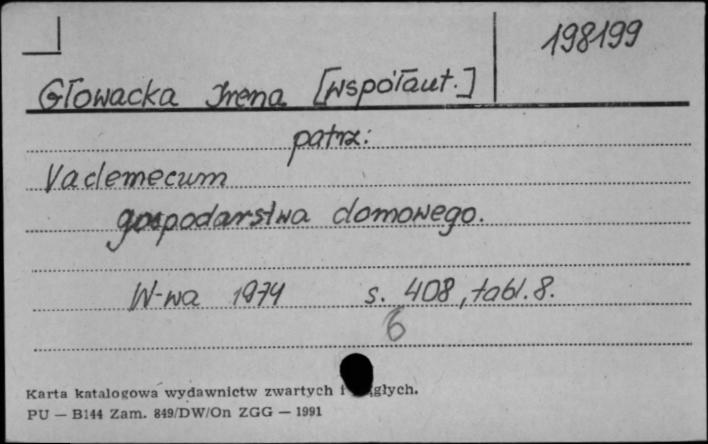 198199
Głowacka Irena [współaut.]
patrz:
Vademecum
gospodarstwa domowego.
W-wa 1974 s. 408, tabl. 8.
6
Karta katalogowa wydawnictw zwartych i głych.
PU — B144 Zam. 849/DW/On ZGG — 1991